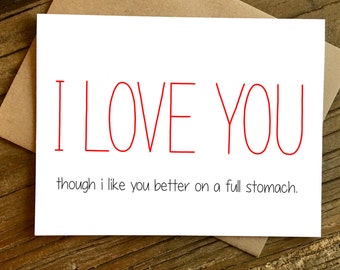 I LOVE YOU
though i like you better on a full stomach.